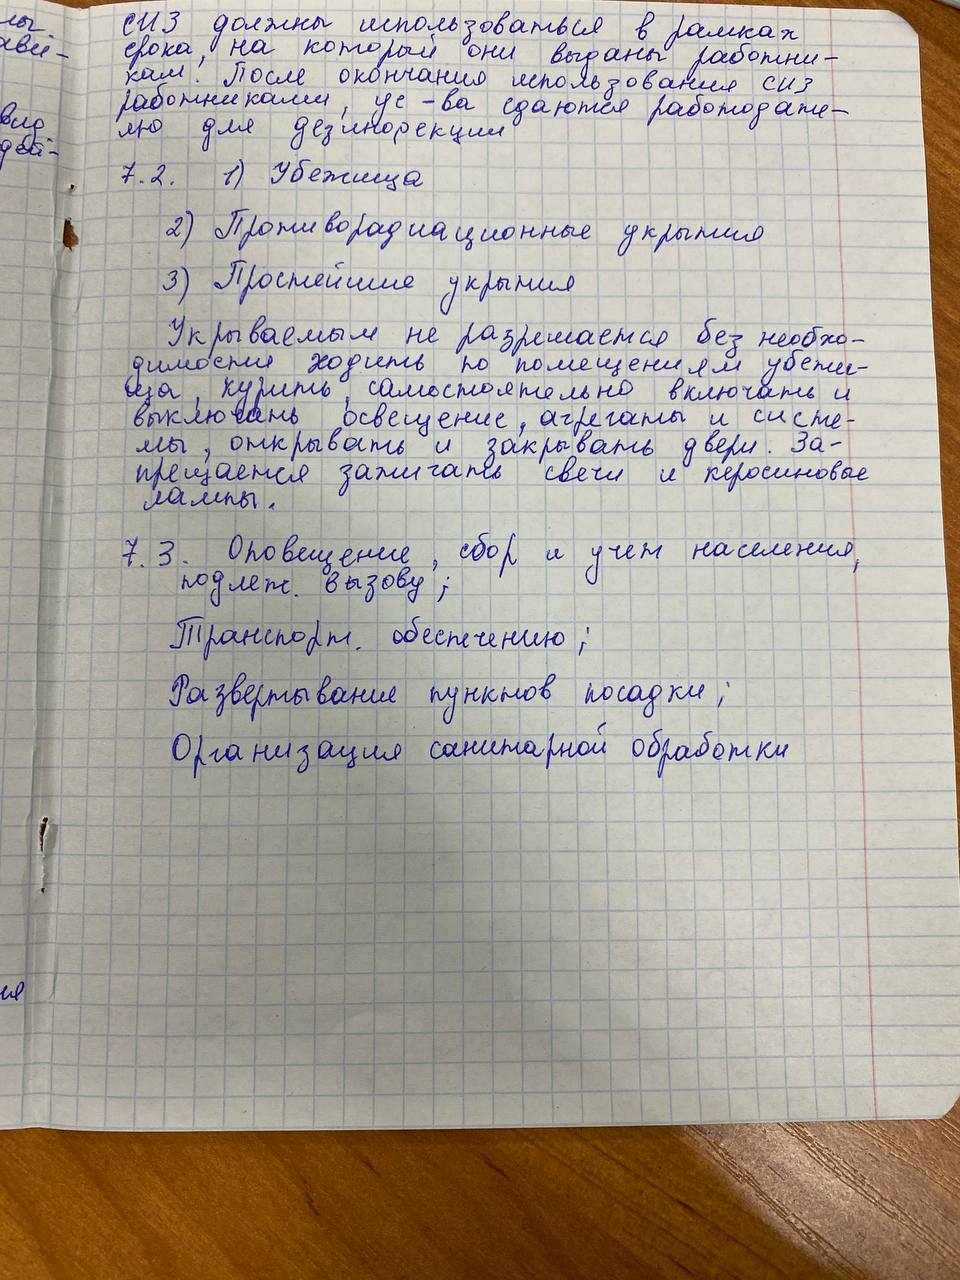 СИЗ должны использоваться в рамках
срока, на который они выданы работни-
кам. После окончания использования СИЗ
работниками, ус-ва сдаются работодате-
лю для дезинфекции
7.2. 1) Убежища
2) Противорадиационные укрытия
3) Простейшие укрытия
Укрываемым не разрешается без необхо-
димости ходить по помещениям убежи-
ща, курить, самостоятельно включать и
выключать освещение, агрегаты и систе-
мы, открывать и закрывать двери. За-
прещается зажигать свечи и керосиновые
лампы.
7.3. Оповещение, сбор и учет населения,
подлеж. вызову;
Транспорт. обеспечению;
Развертывание пунктов посадки;
Организация санитарной обработки